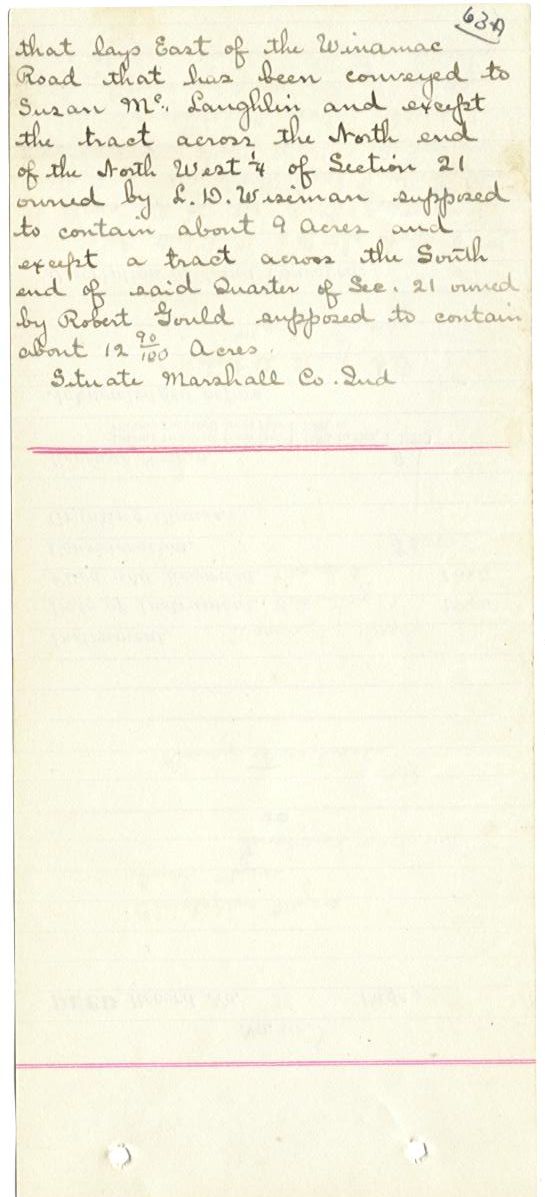 63A
that lays East of the Winamac
Road that has been conveyed to
Susan Mc. Laughlin and except
the tract across the North end
of the North West 1/4 of Section 21
owned by L. D. Wiseman supposed
to contain about 9 Acres and
except a tract across the South
end of said Quarter of Sec. 21 owned
by Robert Gould supposed to contain
about 12 90/100 Acres.
Situate Marshall Co. Ind